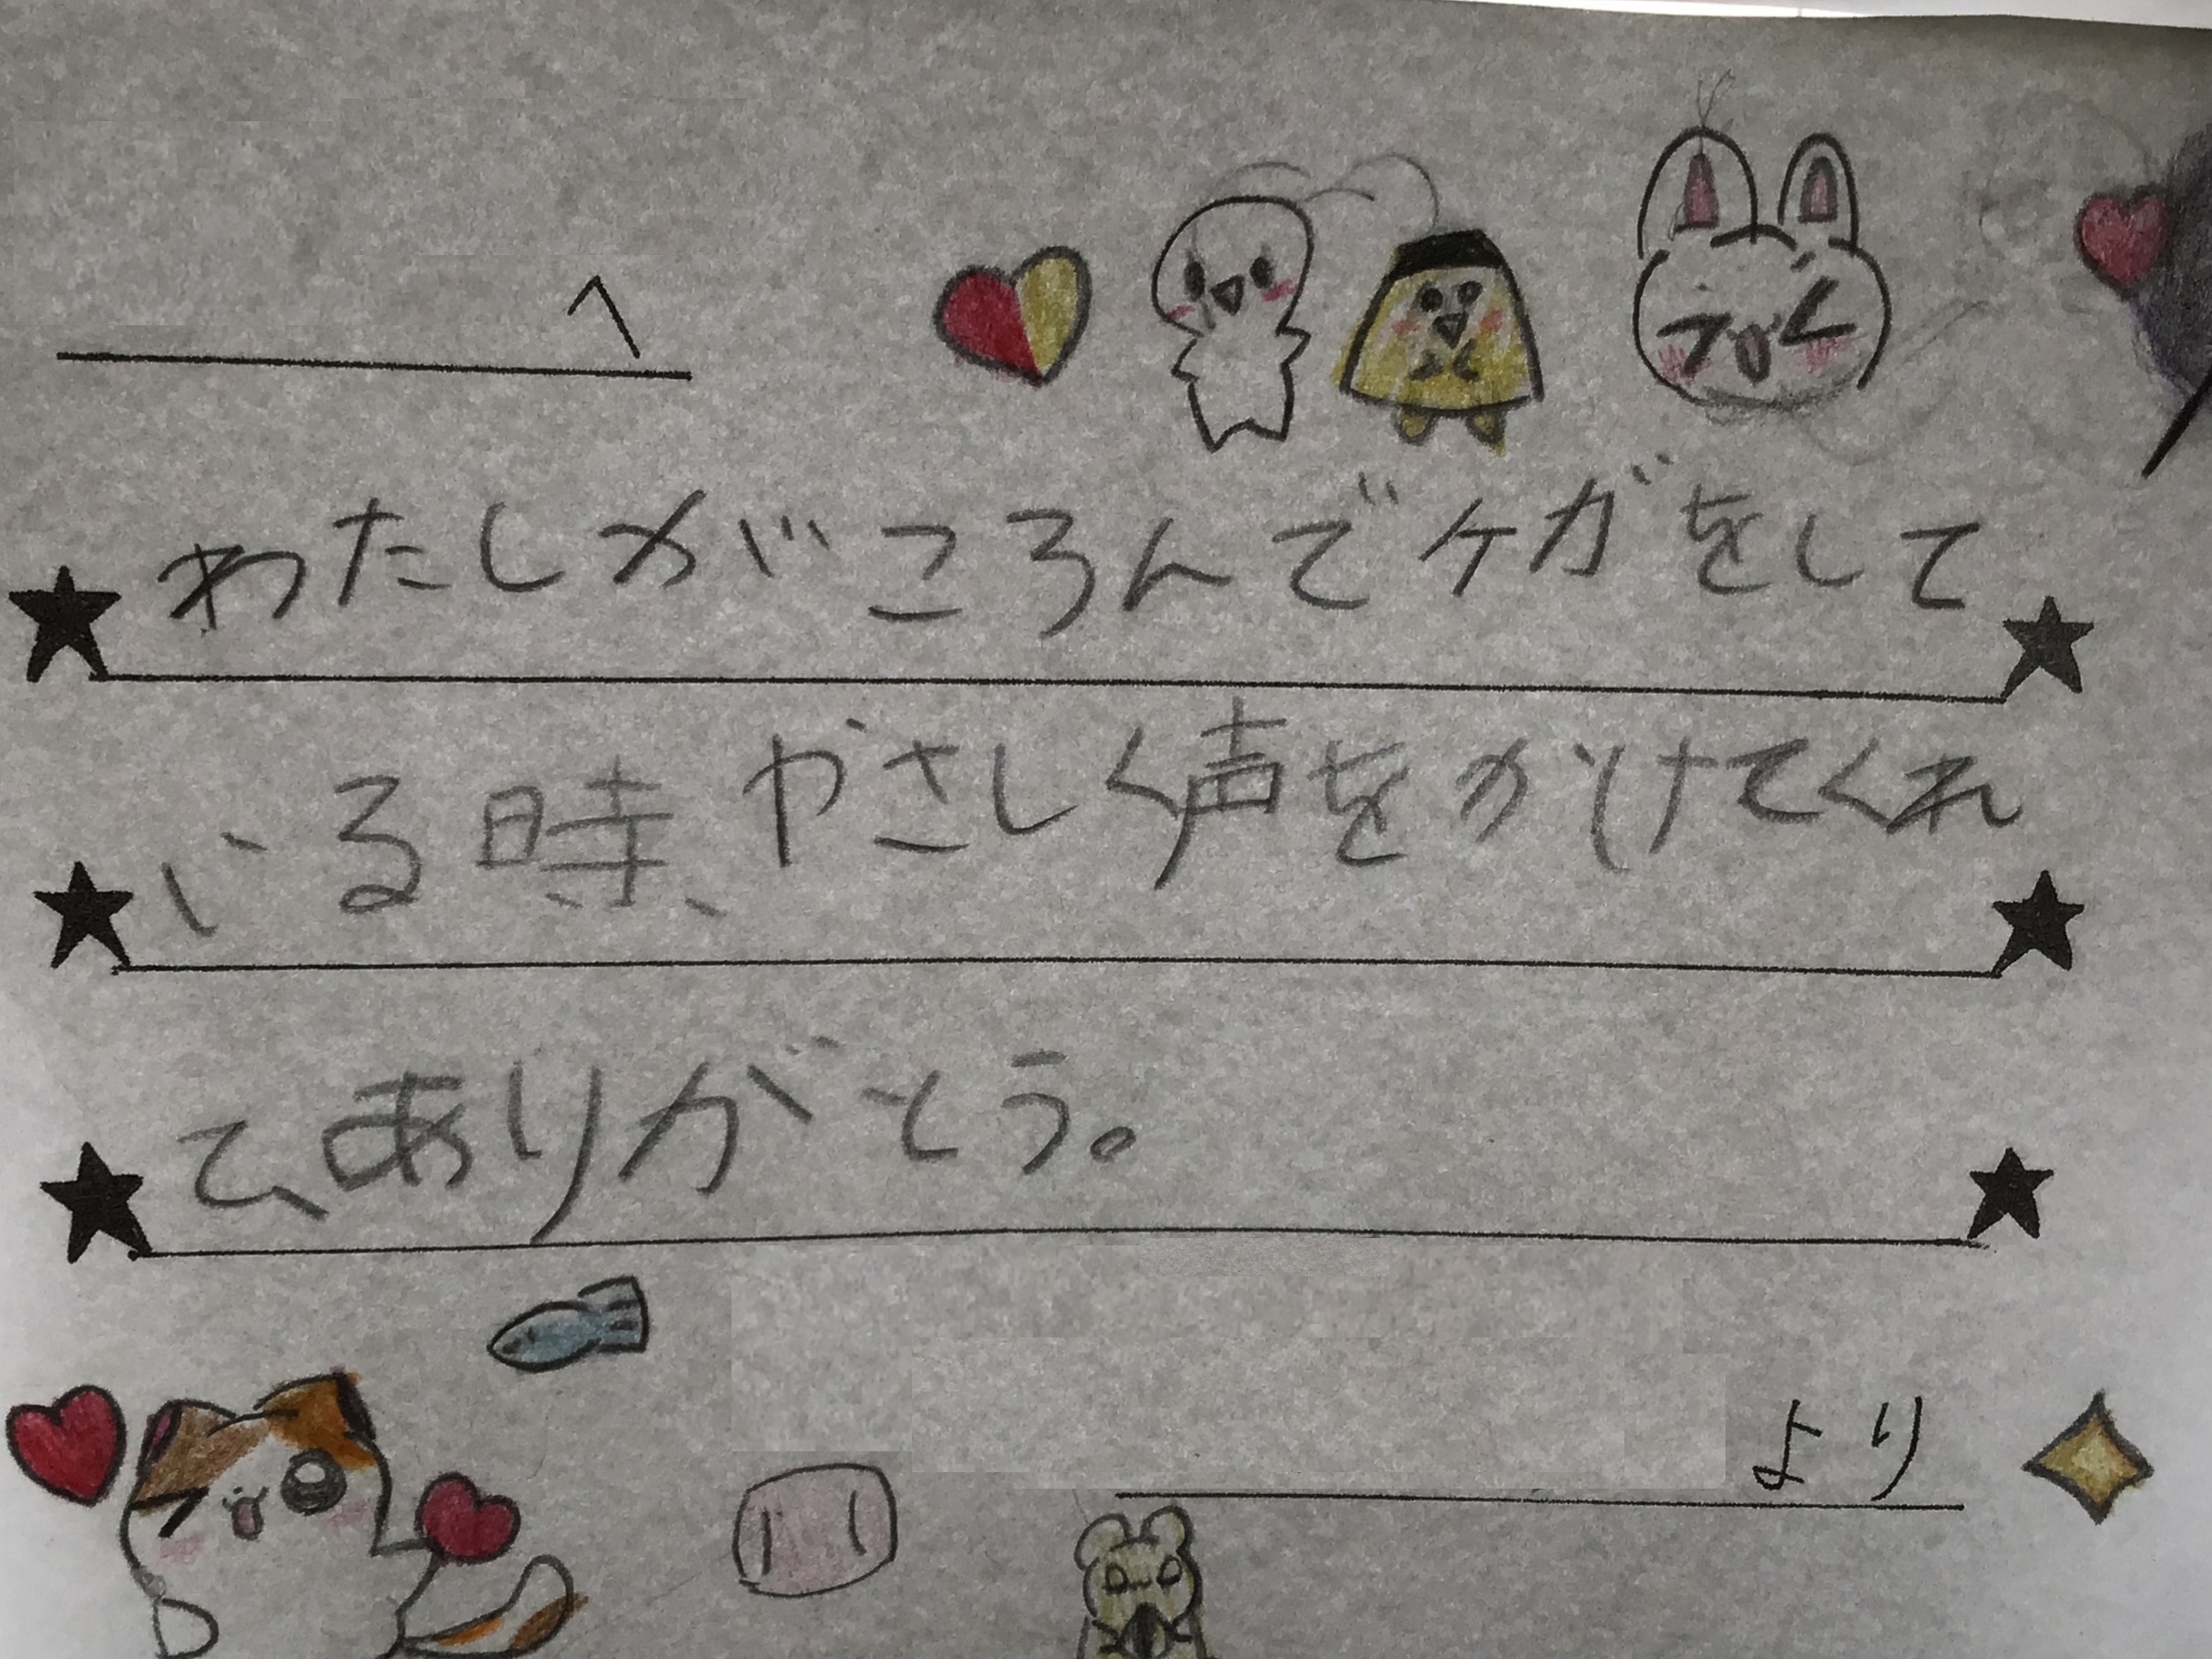 へ
わたしがころんでケガをして
いる時、やさしく声をかけてくれ
て、ありがとう。
より